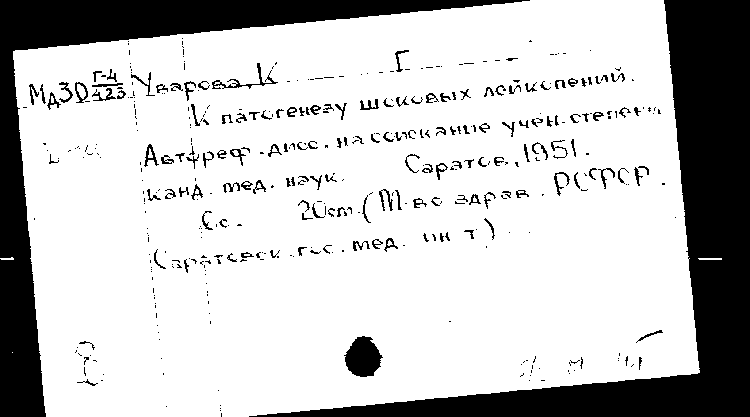 МдЗО Г-4/423 Уварова, К Г
К патогенезу шоковых лейкопений.
Автореф. дисс. на соискание учен. степени
канд. мед. наук. Саратов, 1951.
6с. 20см. (М-во здрав. РСФСР.
Саратовск. гос. мед. ин-т)